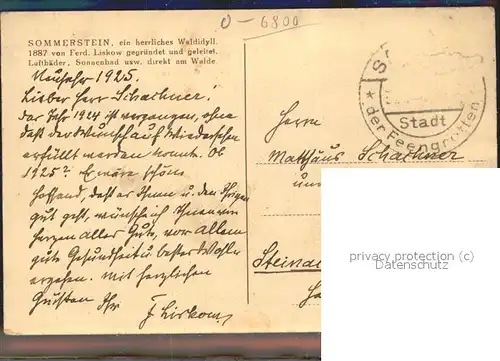 0-6800
SOMMERSTEIN, ein herrliches Waldidyll.
1887 von Ferd. Liskow gegründet und geleitet.
Luftbäder, Sonnenbad usw. direkt am Walde.
Neujahr 1925.
Lieber Herr Schachner!
das Jahr 1924 ist vergangen, ohne
daß der Wunsch auf Wiedersehen
erfüllt werden konnte. Ob
1925? Es wäre schön
Hoffend, daß es Ihnen u. den Ihrigen
gut geht, wünsche ich Ihnen von
Herzen alles Gute, vor allem
gute Gesundheit u. besser Wohl
ergehen. Mit herzlichen
Grüßen Ihr
F. Liskow
Stadt
* der Feengrotten *
Herrn
Matthäus Schachner
Steinac
privacy protection (c)
Datenschutz